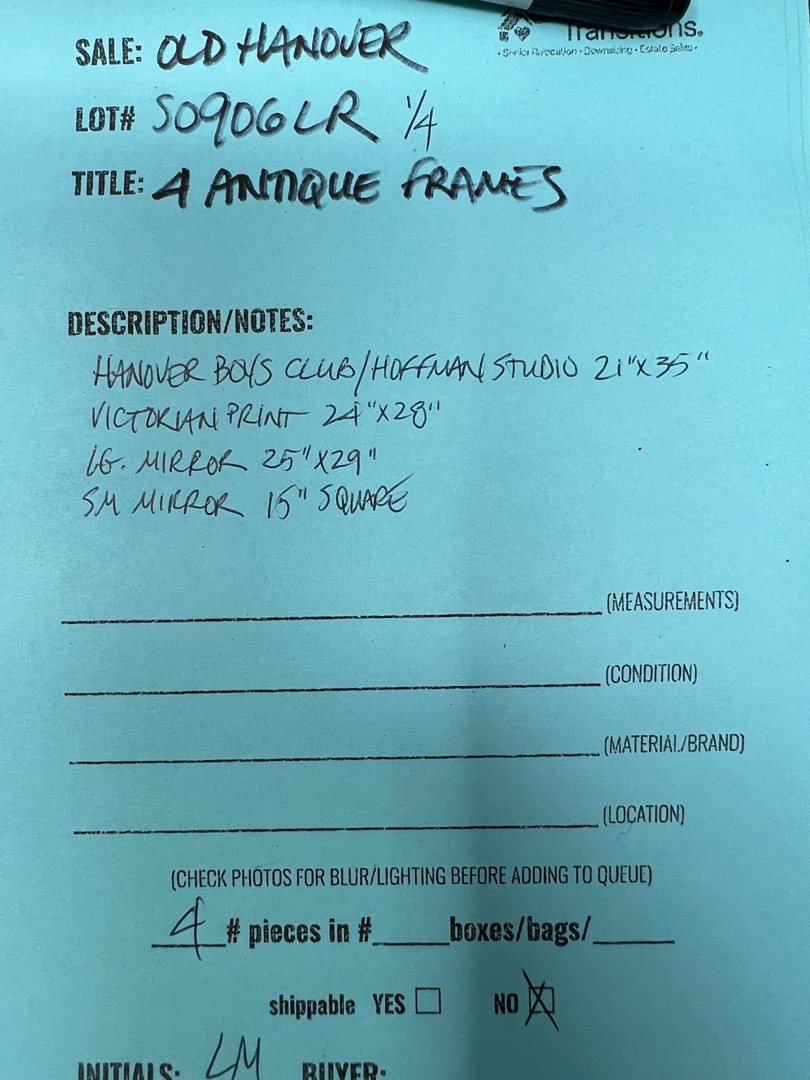 Transitions.
• Senior Relocation • Downsizing • Estate Sales •
SALE: OLD HANOVER
LOT# S0906LR 1/4
TITLE: 4 ANTIQUE FRAMES
DESCRIPTION/NOTES:
HANOVER BOYS CLUB/HOFFMAN STUDIO 21"X35"
VICTORIAN PRINT 24"X28"
LG. MIRROR 25"X29"
SM MIRROR 15" SQUARE
(MEASUREMENTS)
(CONDITION)
(MATERIAL/BRAND)
(LOCATION)
(CHECK PHOTOS FOR BLUR/LIGHTING BEFORE ADDING TO QUEUE)
4 # pieces in #_____boxes/bags/_____
shippable YES ☐ NO ☒
INITIALS: LM BUYER: